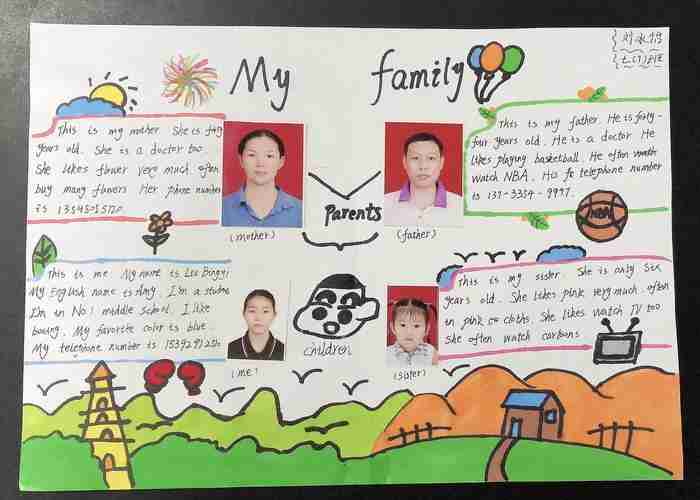 My family
This is my mother. She is forty
years old. She is a doctor too.
She likes flower very much. often
buy many flowers. Her phone number
is
(mother)
Parents
(father)
This is my father. He is forty-
four years old. He is a doctor. He
likes playing basketball. He often
watch NBA. telephone number
is 137-3354-9997.
NBA
This is me. My name is
My English name is Amy. I'm a
I'm in No.1 middle school. I like
boxing. My favorite color is blue.
My telephone number is
(me)
children
(sister)
This is my sister. She is only six
years old. She likes pink very much. often
in pink cloths. She likes watch TV too
She often watch cartoons